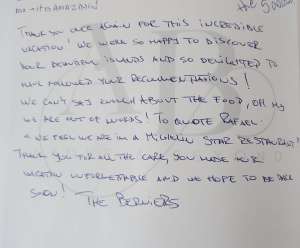 Thank you once again for this incredible
vacation! We were so happy to discover
your beautiful islands and so delighted to
have followed your recommendations!
We can't say enough about the food, oh my
we are out of words! To quote Rafael
"We feel we are in a Michelin star restaurant"
Thank you for all the care, you made our
vacation unforgettable and we hope to be back
soon! The Berniers